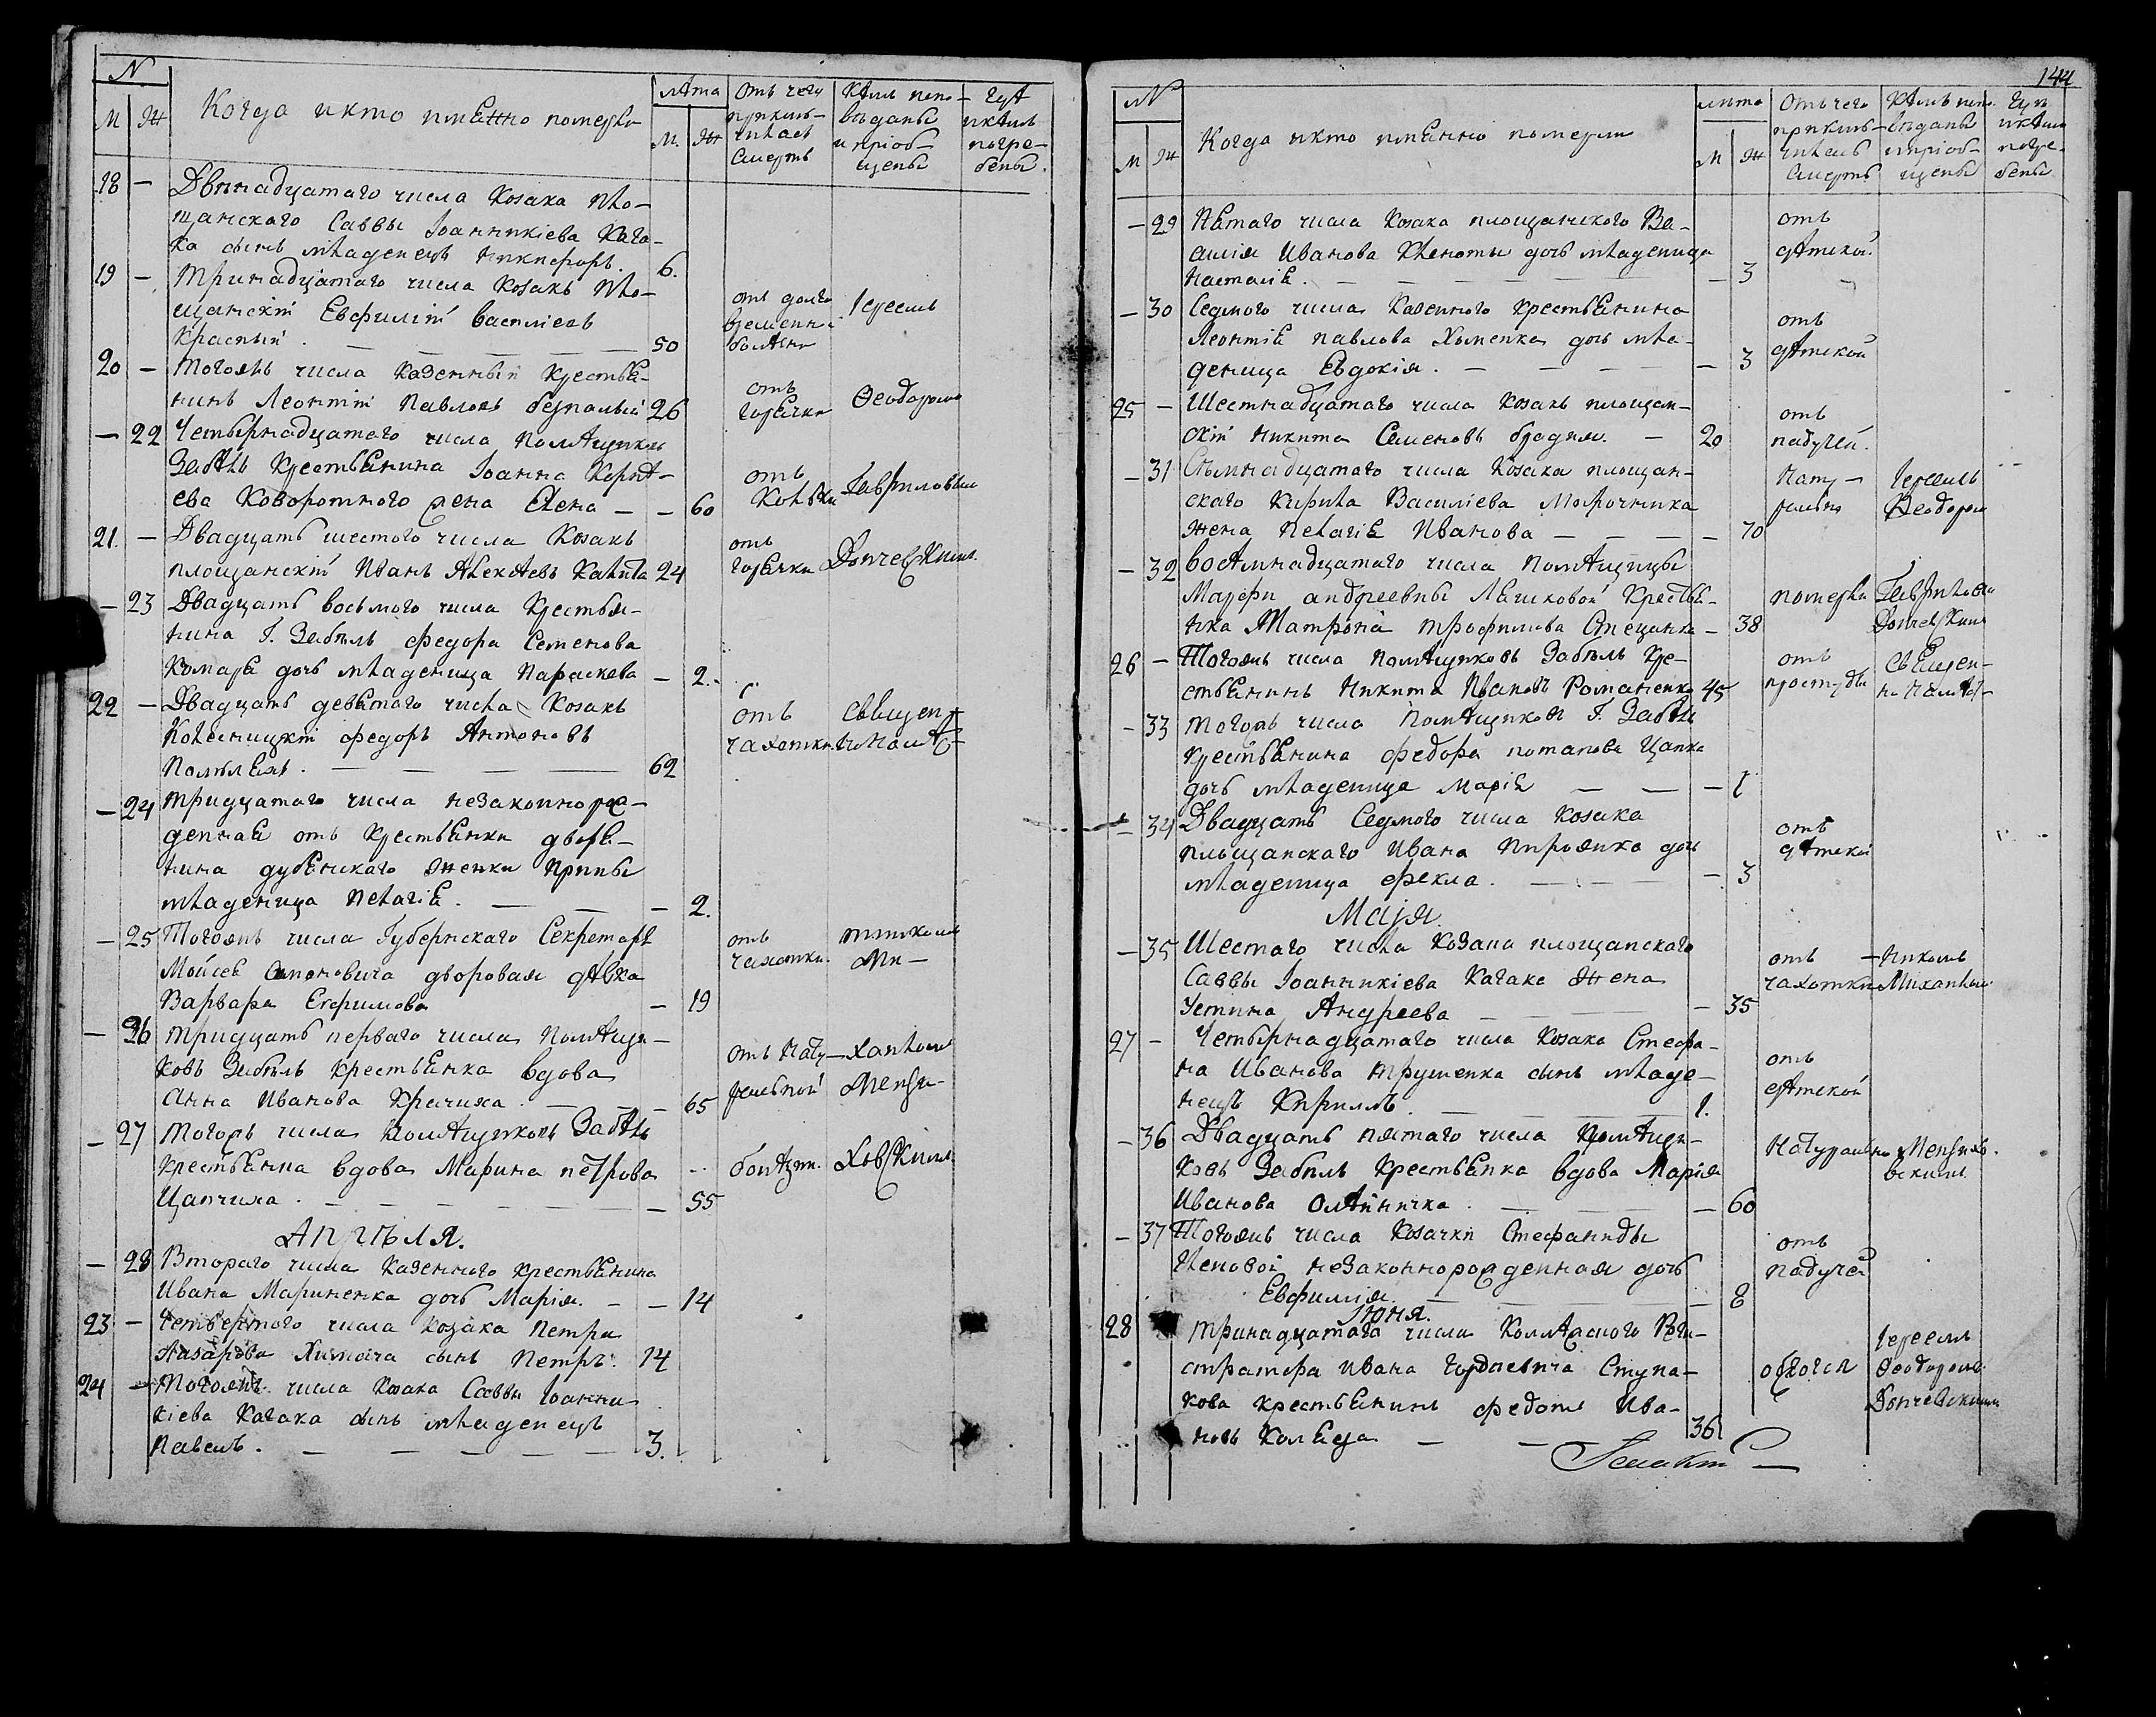 N
М Ж
Когда и кто имѣнно померли
лѣта
М. Ж
Отъ чего
приклю-
чилась
смерть
Кѣмъ испо-
вѣданы
и пріоб-
щены
Гдѣ
и кѣмъ
погре-
бены.
18 — Двѣнадцатаго числа Козака Пло-
щанскаго Саввы Іоанникіева Кача-
ка сынъ младенецъ Никифоръ. 6.
19 — Тринадцатаго числа Козакъ Пло-
щанскій Евфимій Василіевъ
Красный. — 50 отъ долго временной болѣзни Іереемъ
20 — Тогожъ числа Казенный Крестья-
нинъ Леонтій Павловъ 26 отъ горячки Ѳеодоромъ
— 22 Четырнадцатаго числа Помѣщиковъ
Забѣлъ Крестьянина Іоанна Корнѣ-
ева Коворотного жена Елена — — 60 отъ Гавриловым
21. — Двадцать шестого числа Козакъ
площанскій Иванъ Алексѣевъ Калита 24 отъ горячки Дончевскимъ.
— 23 Двадцать восьмого числа Крестья-
нина Г. Забѣлъ Федора Семенова
Комаря дочь младеница Параскева — 2.
22 — Двадцать девятаго числа Козакъ
Федоръ Антоновъ
— 62 отъ чахотки Священ-
— 24 Тридцатаго числа незаконнорож-
денная отъ Крестьянки дворя-
нина женки Ирины
младеница Пелагія. — 2.
— 25 Тогожъ числа Губернскаго Секретаря
Мойсея дворовая дѣвка
Варвара Ефимова — 19 отъ чахотки. Ми-
— 26 Тридцать перваго числа Помѣщи-
ковъ Забѣлъ Крестьянка вдова
Анна Иванова Крачиха. — 65 отъ Нату-ральной хаиломъ Менжи-
— 27 Тогожъ числа помѣщиковъ Забѣлъ
Крестьянка вдова Марина Петрова
Цапчиха. — 55 болѣзни. ховскимъ
Апрѣля.
— 28 Втораго числа Казенного Крестьянина
Ивана Мариненка дочь Марія. — — 14
23 — Четвертого числа Козака Петра
Назарова Химоча сынъ Петръ. 14
24 — Тогожъ числа Козака Саввы Іоанни-
кіева Качака сынъ младенецъ
Павелъ. — 3.
144
N
М Ж
Когда и кто имѣнно померли
лѣта
М Ж
Отъ чего
приклю-
чилась
смерть
Кѣмъ испо-
вѣданы
и пріоб-
щены
Гдѣ
и кѣмъ
погре-
бены
— 29 Пятаго числа Козака площанского Ва-
силія Иванова дочь младеница
Наталія. — 3 отъ дѣтской.
— 30 Седмого числа Казенного Крестьянина
Леонтія Павлова Хоменка дочь мла-
деница Евдокія. — 3 отъ дѣтской
25 — Шестнадцатаго числа Козакъ площан-
скій Никита Семеновъ — 20 отъ падучей.
— 31 числа Козака площан-
скаго Кирила Василіева Мирочника
жена Пелагія Иванова — 70 Нату-рально Іереемъ Ѳеодоромъ
— 32 Восѣмнадцатаго числа Помѣщицы
Марфы Андреевны Крестья-
нка Матрона Трофимова — 38 померла Гавриловым Дончевским
26 — Тогожъ числа помѣщиковъ Забѣлъ Кре-
стьянинъ Никита Ивановъ Романенко 45 отъ простуды Священ-
— 33 Тогожъ числа Помѣщиковъ Г. Забѣлъ
Крестьянина Федора Потапова Цапка
дочь младеница Марія — — 1
— 34 Двадцать Седмого числа Козака
площанскаго Ивана Пирожка дочь
младеница Фекла. — 3 отъ дѣтской
Маія.
— 35 Шестаго числа Козака площанскаго
Саввы Іоанникіева Качака Жена
Устина Андреева — 35 отъ чахотки Михаилом
27 — Четырнадцатаго числа Козака Стефа-
на Иванова Трушенка сынъ младе-
нецъ Кириллъ. — 1. отъ дѣтской
— 36 Двадцать пятаго числа Помѣщи-
ковъ Забѣлъ Крестьянка вдова Марія
Иванова Олѣйничка. — 60 Натурально Менжихо-вскимъ.
— 37 Тогожъ числа Козачки Стефаниды
незаконнорожденная дочь
Евфимія. — 8 отъ падучей
Іюня.
28 Тринадцатаго числа Коллѣжского Реги-
стратора Ивана Гордпевича Ступа-
кова крестьянинъ Федотъ Ива-
новъ Коляда — — 36 Іереемъ Ѳеодоромъ Дончевскимъ